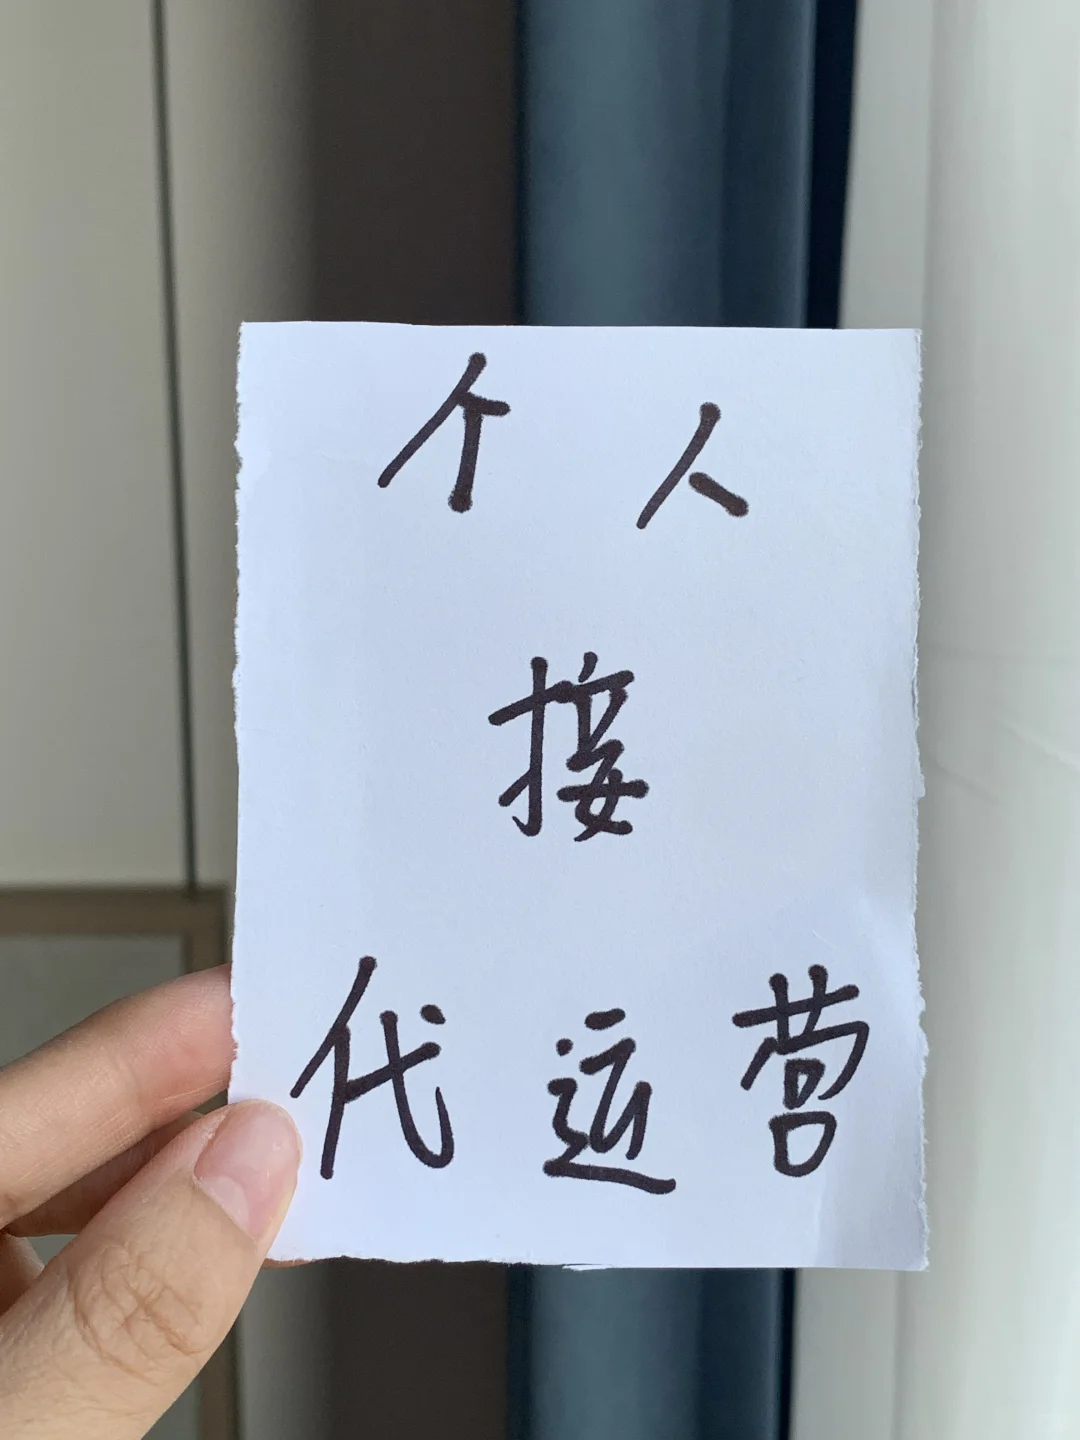 个人
接
代运营